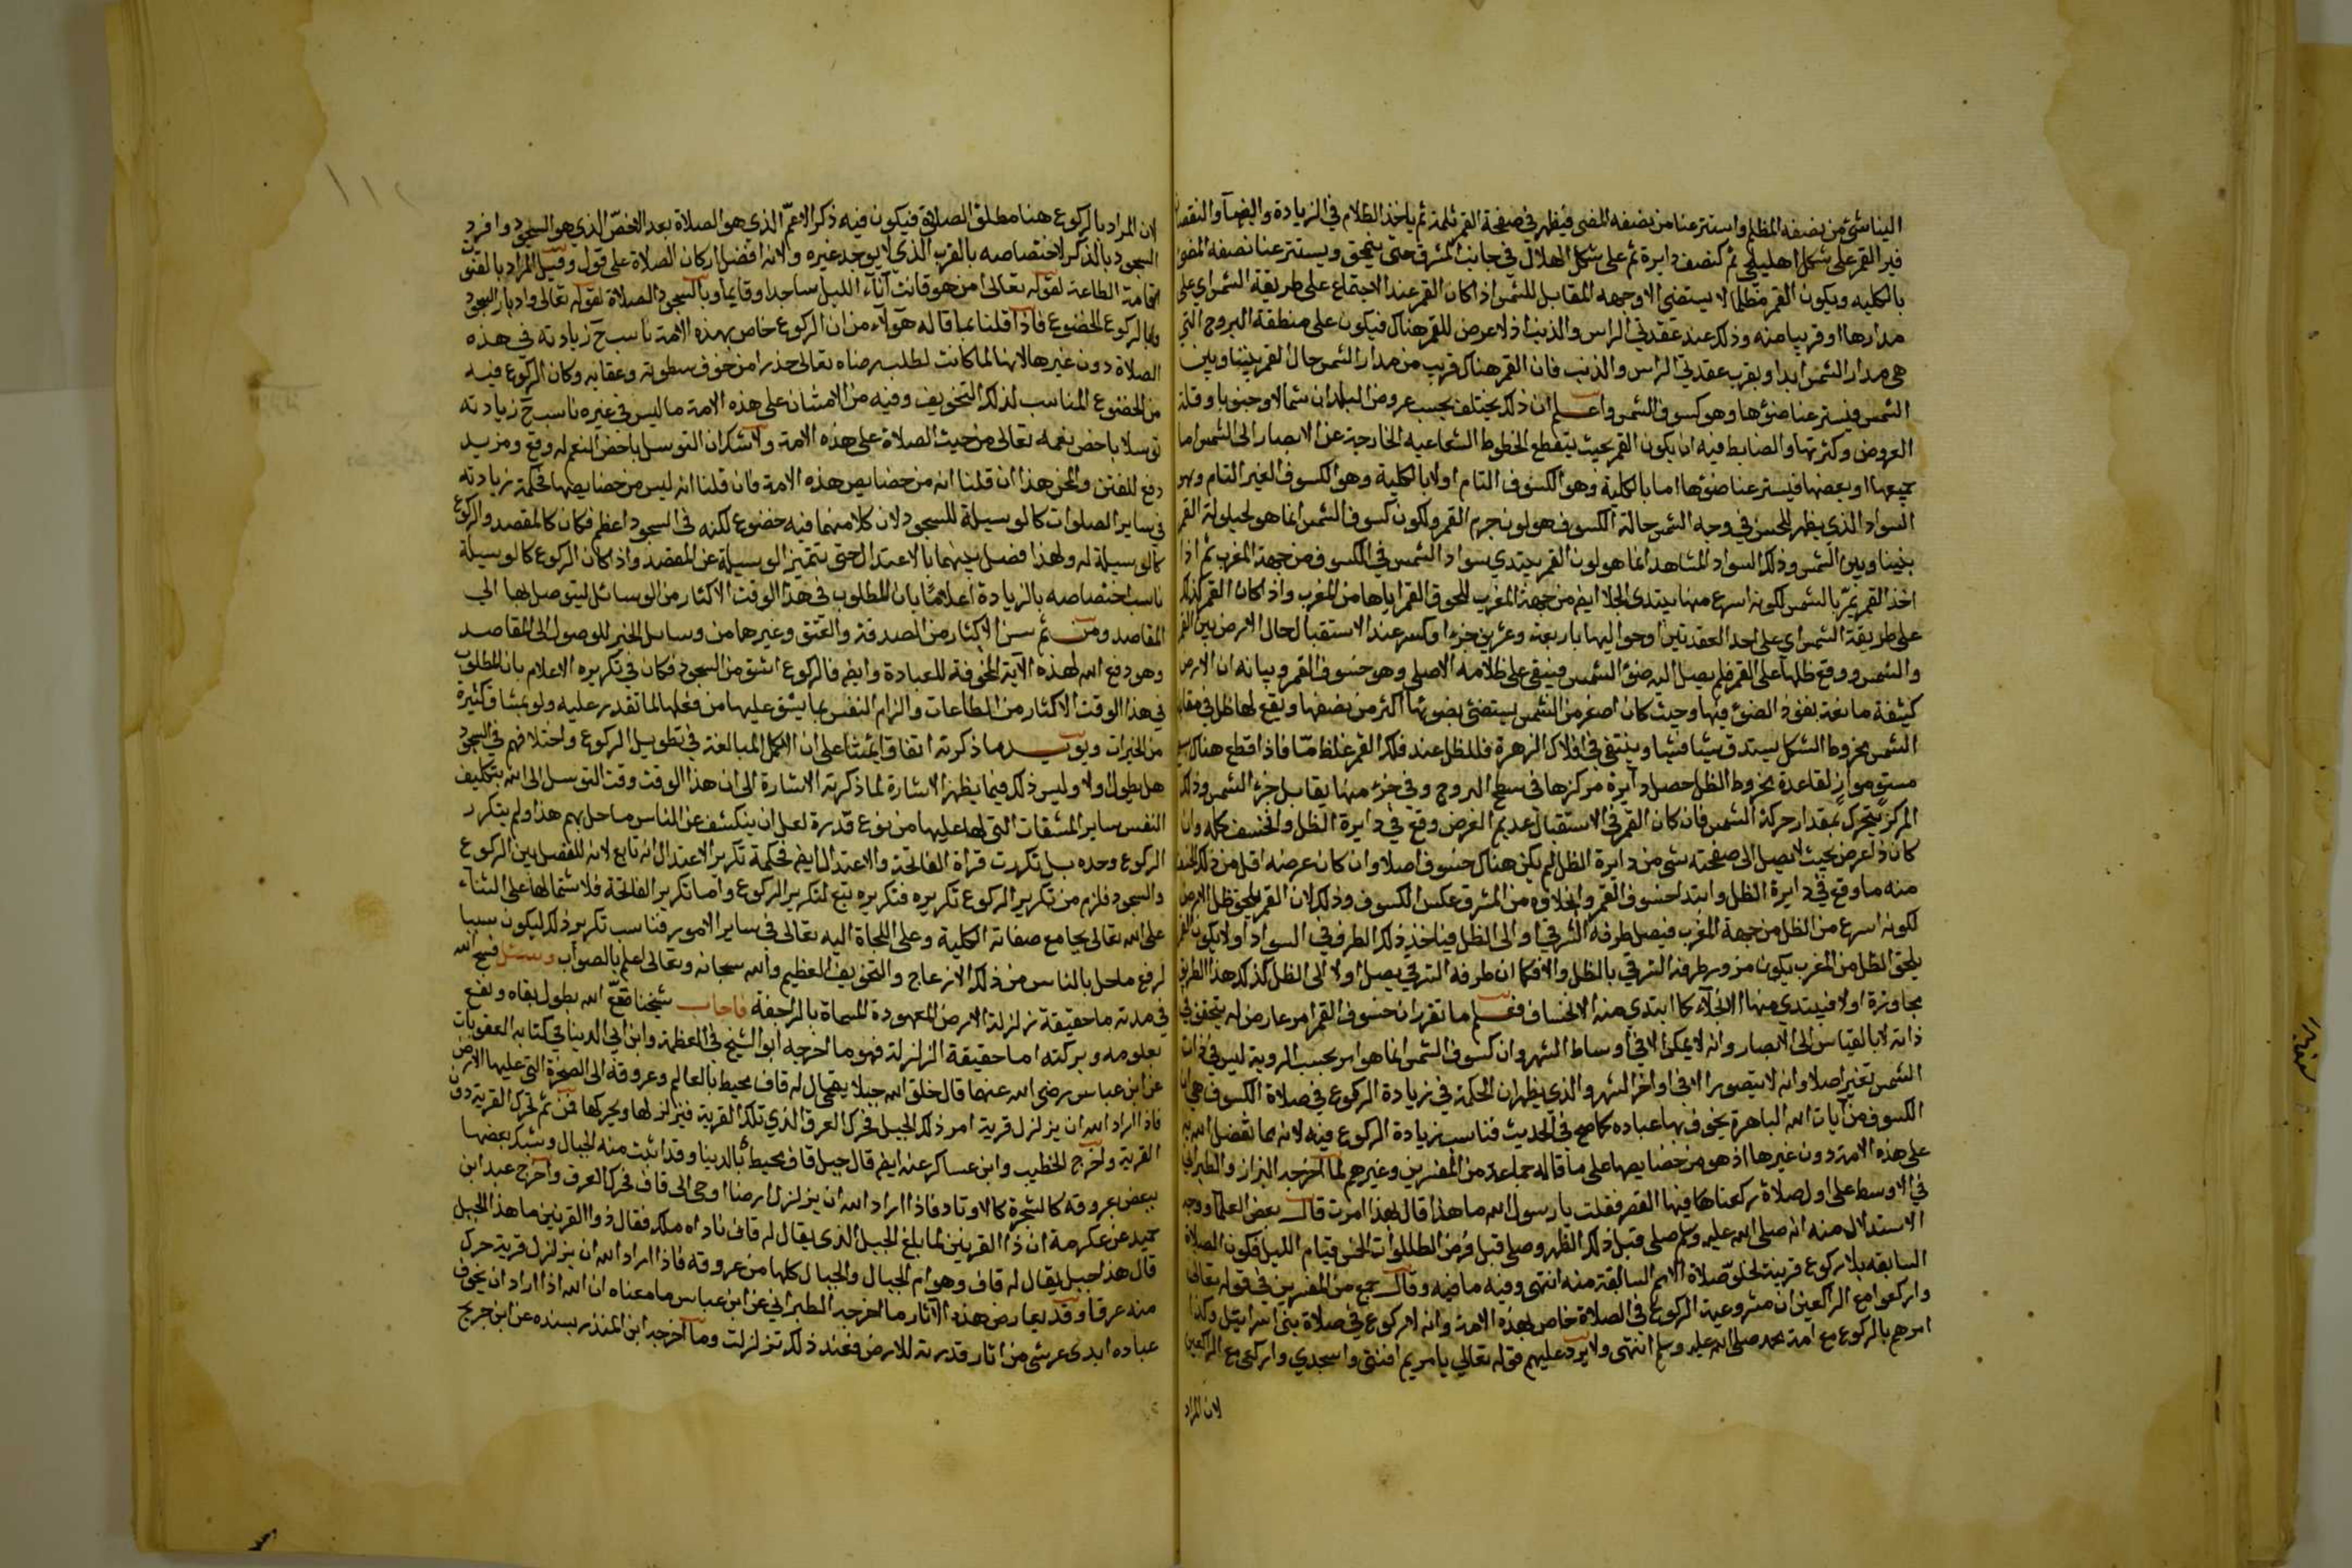 الينا شئ من نصفه المظلم واستتر عنا من نصفه المضى فيظهر في صفحة القمر ثلمة ثم ياخذ الظلام في الزيادة والضيآ والنقصان
فيرا القمر على شكل اهليلجي ثم كنصف دايرة ثم على شكل الهلال في جانب المشرق حتى ينمحق ويستتر عنا نصفه المضئ
بالكليه ويكون القمر مظلما لا يستضئ الا وجهه المقابل للشمس اذا كان القمر عند الاجتماع على طريقة الشمس اي على
مدارها او قريبا منه وذلك عند عقدتي الراس والذنب اذ لا عرض للقمر هناك فيكون على منطقة البروج التي
هي مدار الشمس ابدا وبقرب عقدتي الراس والذنب فان القمر هناك قريب من مدار الشمس حال القمر بيننا وبين
الشمس فيستر عنا ضوءها وهو كسوف الشمس واعلم ان ذلك يختلف بحسب عروض البلدان شمالا وجنوبا وقلة
العروض وكثرتها والضابط فيه ان يكون القمر بحيث يقطع الخطوط الشعاعيه الخارجة عن الابصار الى الشمس اما
جميعها او بعضها فيستر عنا ضوءها اما بالكلية وهو الكسوف التام اولا بالكلية وهو الكسوف الغير التام وهو
السواد الذي يظهر للحس في وجه الشمس حالة الكسوف هو لون جرم القمر ولكون كسوف الشمس انما هو لحيلولة القمر
بيننا وبين الشمس وذلك السواد المشاهد انما هو لون القمر يبتدي سواد الشمس في الكسوف من جهة المغرب ثم اذا
اخذ القمر يمر بالشمس لكونه اسرع منها يبتدى الجلا ايضا من جهة المغرب للحوق القمر اياها من المغرب واذا كان القمر كذلك
على طريقة الشمس اي على احد العقدتين او حواليها باربعة وعشرين جزءا وكسر عند الاستقبال حال الارض بين القمر
والشمس ووقع ظلها على القمر فلم يصل اليه ضوئ الشمس فيبقى على ظلامه الاصلي وهو خسوف القمر وبيانه ان الارض
كثيفة مانعة نفوذ الضوئ فيها وحيث كان اصغر من الشمس يستضئ بضوئها اكثر من نصفها ويقع لها ظل في مقابلة
الشمس مخروط الشكل يستدق شيئا فشيئا وينتفي في افلاك الزهرة فللظل عند فلك القمر غلظ ما فاذا قطع هناك بسطح
مستو مواز لقاعدة مخروط الظل حصل دآيرة مركزها في سطح البروج وفي جزء منها يقابل جزء الشمس وذلك
المركز يتحرك بمقدار حركة الشمس فان كان القمر في الاستقبال عديم العرض وقع في دايرة الظل وانخسف كله وان
كان ذا عرض بحيث لا يصل الى صفحته شى من دايرة الظل لم يكن هناك خسوف اصلا وان كان عرضه اقل من ذلك انخسف
منه ما وقع في دايرة الظل وابتدا خسوف القمر وانجلاؤه من المشرق عكس الكسوف وذلك لان القمر يلحق ظل الارض
لكونه اسرع من الظل من جهة المغرب فيصل طرفه الشرقي او الى الظل فياخذ ذلك الطرف في السواد اولا يكون القمر
يلحق الظل من المغرب يكون مرور طرفه الشرقي بالظل والا فكما ان طرفه الشرقي يصل اولا الى الظل كذلك هذا الطرف
يجاوزه اولا فيبتدى منها الانجلآء كما ابتدي منه الانخساف فعلم ما تقرر ان خسوف القمر امر عارض له يتحقق في
ذاته لا بالقياس الى الابصار وانه لا يمكن الا في اوساط الشهر وان كسوف الشمس انما هو امر بحسب الروية ليس في ذات
الشمس تغير اصلا وانه لا يتصور الا في اواخر الشهر والذي يظهر ان الحكمة في زيادة الركوع في صلاة الكسوف هي ان
الكسوف من آيات الله الباهرة يخوف بها عباده كما صح في الحديث فناسب زيادة الركوع فيه لانه مما تفضل الله به
على هذه الامة دون غيرها اذ هو من خصايصها على ما قاله جماعة من المفسرين وغيرهم لما اخرجه البزار والطبراني
في الاوسط على اول صلاة ركعنا فيها العصر فقلت يا رسول الله ما هذا قال بهذا امرت قال بعض العلماء ووجه
الاستدلال منه انه صلى الله عليه وسلم صلى قبل ذلك الظهر وصلى قبل فرض الصلوات الخمس قيام الليل فكون الصلاة
السابقه بلا ركوع قرينة لخلو صلاة الامم السالفة منه انتهى وفيه ما فيه وقال جمع من المفسرين في قوله تعالى
واركعوا مع الراكعين ان مشروعية الركوع في الصلاة خاص بهذه الامة وانه لا ركوع في صلاة بني اسرائيل وكذا
امرهم بالركوع مع امة محمد صلى الله عليه وسلم انتهى ولا يرد عليهم قوله تعالى يا مريم اقنتي واسجدي واركعي مع الراكعين
لان المراد
لان المراد بالركوع هنا مطلق الصلاة فيكون فيه ذكر الاعم الذي هو الصلاة بعد الاخص الذي هو السجود وافرد
السجود بالذكر لاختصاصه بالقرب الذي لا يوجد غيره ولانه افضل اركان الصلاة على قول وقيل المراد بالقنوت
اقامة الطاعة لقوله تعالى امن هو قانت آنآء الليل ساجدا وقايما وبالسجود الصلاة لقوله تعالى وادبار السجود
وبالركوع الخضوع فاذا قلنا بما قاله هؤلاء من ان الركوع خاص بهذه الامة ناسب ح زيادته في هذه
الصلاة دون غيرها لانها لما كانت لطلب رضاه تعالى حذرا من خوف سطوته وعقابه وكان الركوع فيه
من الخضوع المناسب لذلك التخويف وفيه من الامتنان على هذه الامة ما ليس في غيره ناسب ح زيادته
توسلا باخص نعمه تعالى من حيث الصلاة على هذه الامة ولا شك ان التوسل باخص النعم له وقع ومزيد
دفع للفتن والمحن هذا ان قلنا انه من خصايص هذه الامة فان قلنا انه ليس من خصايصها فحكمة زيادته
في ساير الصلوات كالوسيلة للسجود لان كلا منهما فيه خضوع لكنه في السجود اعظم فكان كالمقصد والركوع
كالوسيلة له ولهذا فصل بينهما بالاعتدال حتى تتميز الوسيلة عن المقصد واذا كان الركوع كالوسيلة
ناسب اختصاصه بالزيادة اعلاما بان المطلوب في هذا الوقت الاكثار من الوسائل ليتوصل بها الي
المقاصد ومن ثم سن الاكثار من الصدقة والعتق وغيرها من وسايل الخير للوصول الى المقاصد
وهو دفع الله لهذه الآية المخوفة للعبادة وايضا فالركوع اشق من السجود فكان في تكريره الاعلام بان المطلوب
في هذا الوقت الاكثار من الطاعات والزام النفس بما يشق عليها من فعلها لما تقدر عليه ولو بمشاق كثيرة
من الخيرات ويويد ما ذكرته اتفاق ايمتنا على ان الاكمل المبالغة في تطويل الركوع واختلافهم في السجود
هل يطول اولا وليس ذلك فيما يظهر الاشارة لما ذكرته الاشارة الى ان هذا الوقت وقت التوسل الى الله بتكليف
النفس ساير المشقات التي لها عليها من نوع قدرة لعل ان ينكشف عن الناس ما حل بهم هذا ولم يتكرر
الركوع وحده بل تكررت قراة الفاتحة والاعتدال ايضا فحكمة تكرير الاعتدال انه تابع لانه للفصل بين الركوع
والسجود فلزم من تكرير الركوع تكريره فتكريره تبع لتكرير الركوع واما تكرير الفاتحة فلاشتمالها على الثناء
على الله تعالى بجامع صفاته الكلية وعلى اللجاة اليه تعالى في ساير الامور فناسب تكرير ذلك ليكون سببا
لرفع ما حل بالناس من ذلك الانزعاج والتخويف العظيم والله سبحانه وتعالى اعلم بالصواب وسئل فسح الله
في مدته ما حقيقة زلزلة الارض المعهودة المسماة بالراجفة فاجاب شيخنا متع الله بطول بقاه ونفع
بعلومه وبركته اما حقيقة الزلزلة فهو ما اخرجه ابو الشيخ في العظمة وابن ابي الدنيا في كتابه العقوبات
عن ابن عباس رضي الله عنهما قال خلق الله جبلا يقال له قاف محيط بالعالم وعروقه الى الصخرة التي عليها الارض
فاذا اراد الله ان يزلزل قرية امر ذلك الجبل فحرك العرق الذي تلك القرية فيزلزلها ويحركها فمن ثم تحرك القرية دون
القرية واخرج الخطيب وابن عساكر عنه ايضا قال جبل قاف محيط بالدنيا وقد انبت منه الجبال وشبك بعضها
ببعض بعروقه كالشجرة كالاوتاد فاذا اراد الله ان يزلزل ارضا اوحى الى قاف فحرك العرق واخرج عبد ابن
حميد عن عكرمة ان ذا القرنين لما بلغ الجبل الذي يقال له قاف ناداه ملك فقال ذو القرنين ما هذا الجبل
قال هذا جبل يقال له قاف وهو ام الجبال والجبال كلها من عروقه فاذا اراد الله ان يزلزل قرية حرك
منه عرقا وقد يعارض هذه الآثار ما اخرجه الطبراني عن ابن عباس ما معناه ان الله اذا اراد ان يخوف
عباده ابدى عن شئ من اثار قدرته للارض فعند ذلك تزلزلت وما اخرجه ابن المنذر بسنده عن ابن جريج